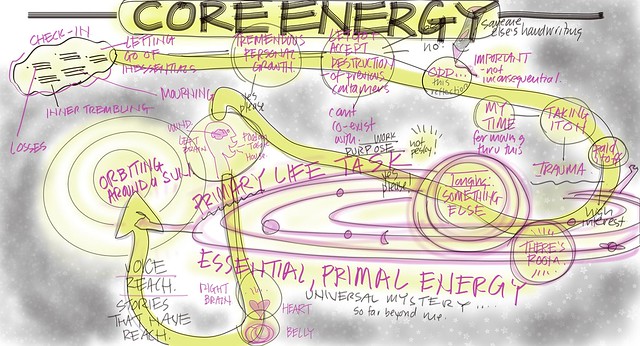 CORE ENERGY
CHECK-IN
LETTING
GO OF
INESSENTIALS
MOURNING
INNER TREMBLING
LOSSES
TREMENDOUS
PERSONAL
GROWTH.
LET GO?
ACCEPT
DESTRUCTION
of previous
containers
can't
co-exist
with.
no.
someone
else's handwriting
ODD...
this
reflection
IMPORTANT
- not
inconsequential.
MY
TIME
for making
thru this
TAKING
IT ON
TRAUMA
paid
high
interest
THERE'S
ROOM.
yes
please
MIND
LEFT
BRAIN
WORK
PURPOSE
not
pesky
yes
please
ORBITING
AROUND a SUN
PRIMARY LIFE TASK
SOMETHING
ELSE
ESSENTIAL, PRIMAL ENERGY
UNIVERSAL MYSTERY ....
so far beyond me.
VOICE
REACH.
STORIES
THAT HAVE
REACH.
RIGHT
BRAIN
HEART
BELLY